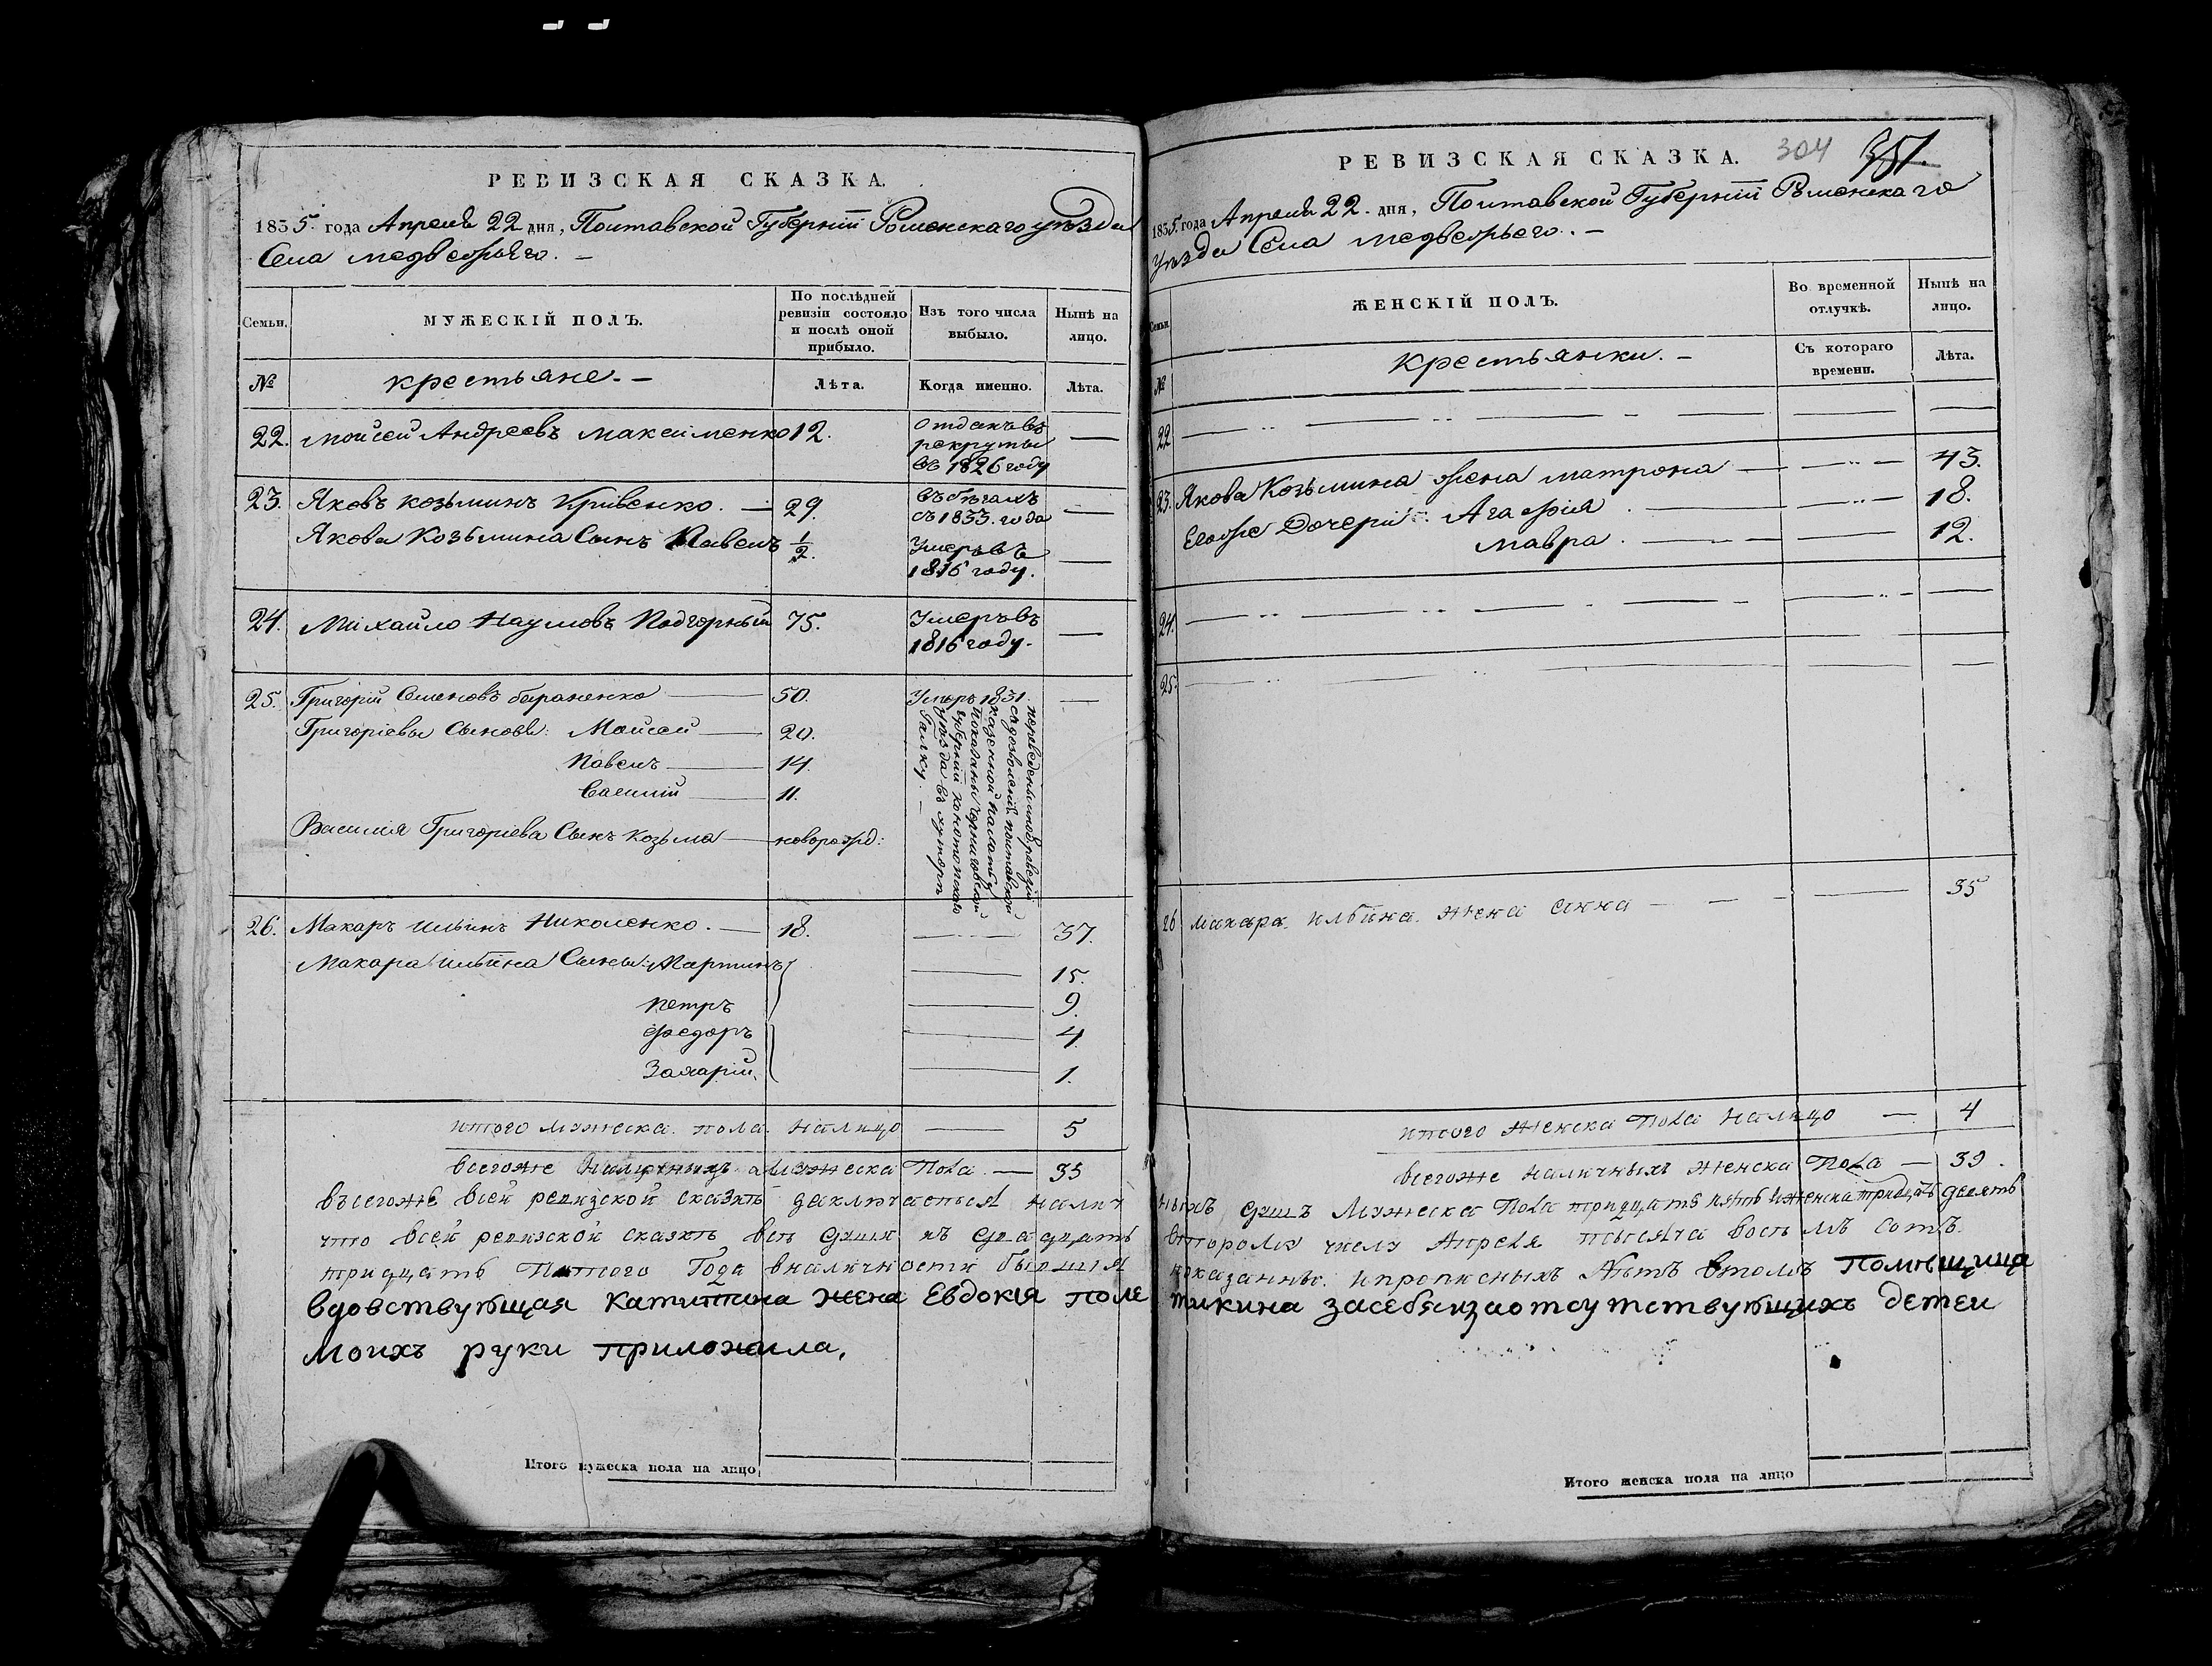 РЕВИЗСКАЯ СКАЗКА.
1835. года Апреля 22 дня, Полтавской Губерніи Роменскаго уѣзда
Села Медвежьяго. —
Семьи.
МУЖЕСКІЙ ПОЛЪ.
По послѣдней ревизіи состояло и послѣ оной прибыло.
Изъ того числа выбыло.
Нынѣ на лицо.
№
крестьяне. —
Лѣта.
Когда именно.
Лѣта.
22. Моисей Андреевъ Максименко 12. Отданъ въ
рекруты
въ 1826 году —
23. Яковъ Козьминъ Кривенко. — 29. въ бѣгахъ
съ 1833. года —
Якова Козьмина Сынъ Павелъ ½. Умеръ въ
1816 году. —
24. Михайло Наумовъ Подгорный 75. Умеръ въ
1816 году. —
25. Григорій Семеновъ Бараненко — 50. Умеръ 1831. —
Григоріевы Сыновья: Моисей — 20.
Павелъ — 14.
Василій — 11.
Василія Григоріева Сынъ Козьма — новорожд:
переведены по ревизіи
съ дозволенія полтавской
казенной палаты
показаны Черниговской
губерніи Конотопскаго
уѣзда въ хуторѣ
Галку. —
26. Макаръ Ильинъ Николенко. — 18. — 37.
Макара Ильина Сыны: Мартинъ — 15.
Петръ — 9.
Федоръ — 4.
Захарій. — 1.
итого мужеска пола налицо — 5
всегоже наличныхъ мужеска пола — 35
всегоже всей ревизской сказкѣ заключается налич
что всей ревизской сказкѣ всѣ души къ двадцать
тридцать пятого Года вналичности бывшія
вдовствующая капитана жена Евдокія поле
моихъ руки приложила,
Итого мужеска пола на лицо
РЕВИЗСКАЯ СКАЗКА. 304 351.
1835. года Апреля 22. дня, Полтавской Губерніи Роменскаго
уѣзда Села Медвежьего. —
Семьи.
ЖЕНСКІЙ ПОЛЪ.
Во временной отлучкѣ.
Нынѣ на лицо.
№
крестьянки. —
Съ котораго времени.
Лѣта.
22 — — —
23. Якова Козьмина жена Матрона — — 43.
Егоже Дочери: Агафія — — 18.
Мавра. — — 12.
24. — — —
25. — — —
26 Макара Ильина жена Анна — — 35
итого женска пола налицо — 4
всегоже наличныхъ женска пола — 39.
ныхъ душъ мужеска пола тридцать пять и женска тридцать девять
второму числу Апреля тысяча восьмъ сотъ
показанны. и прописныхъ нѣтъ втомъ помѣщица
тикина засебя изаотсутствующихъ детеи
Итого женска пола на лицо